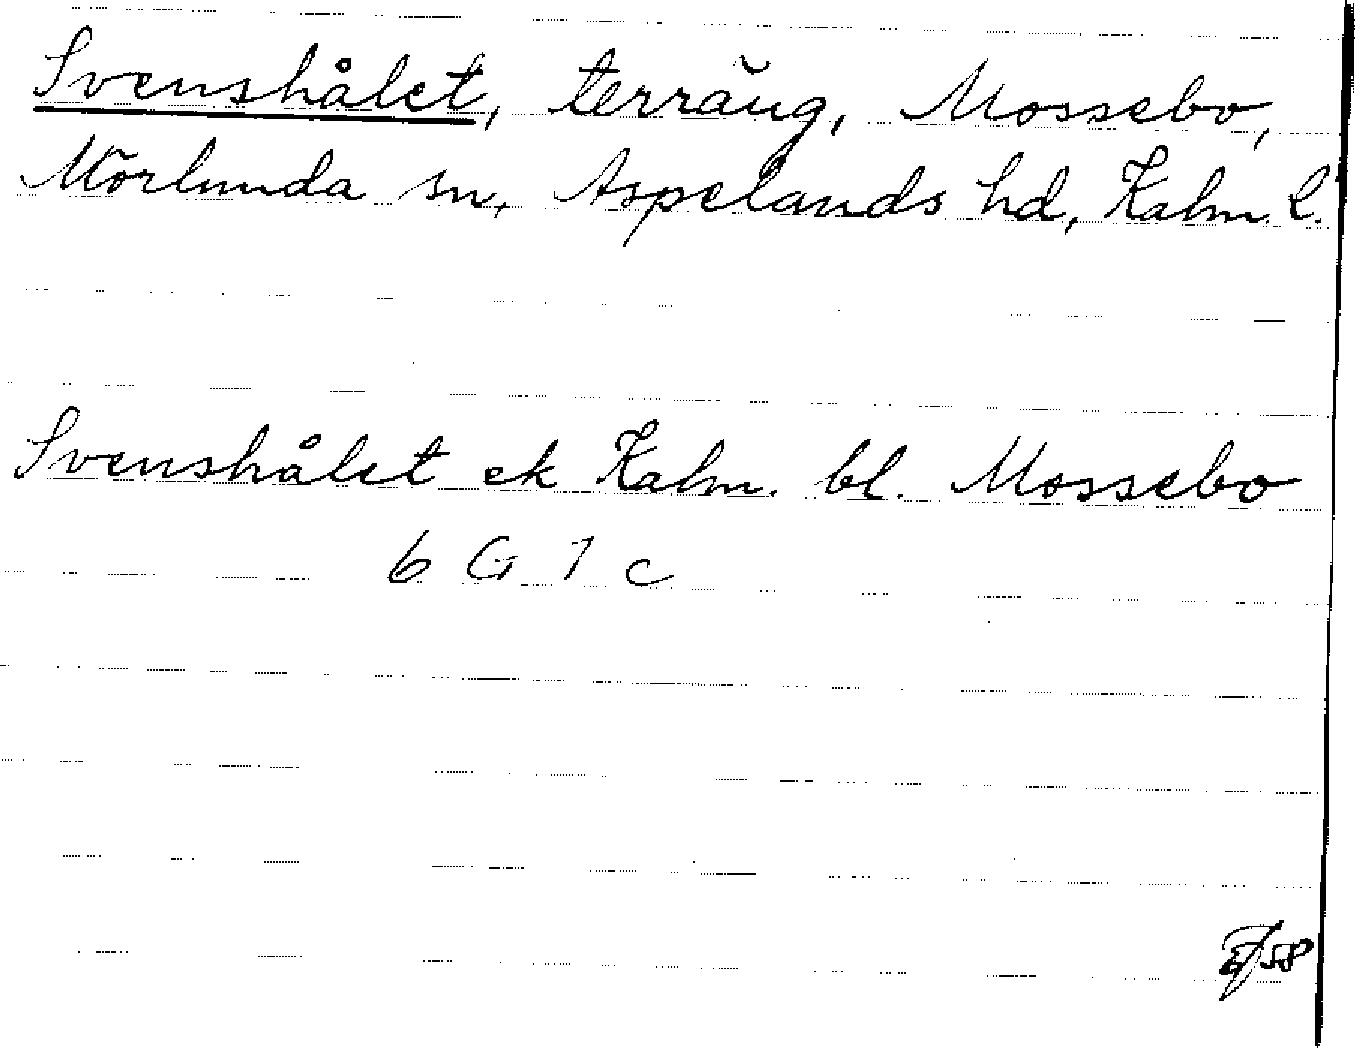 Svenshålet, terräng, Mossebo,
Mörlunda sn, Aspelands hd, Kalm. l.
Svenshålet ek Kalm. bl. Mossebo
6 G 1 c
58